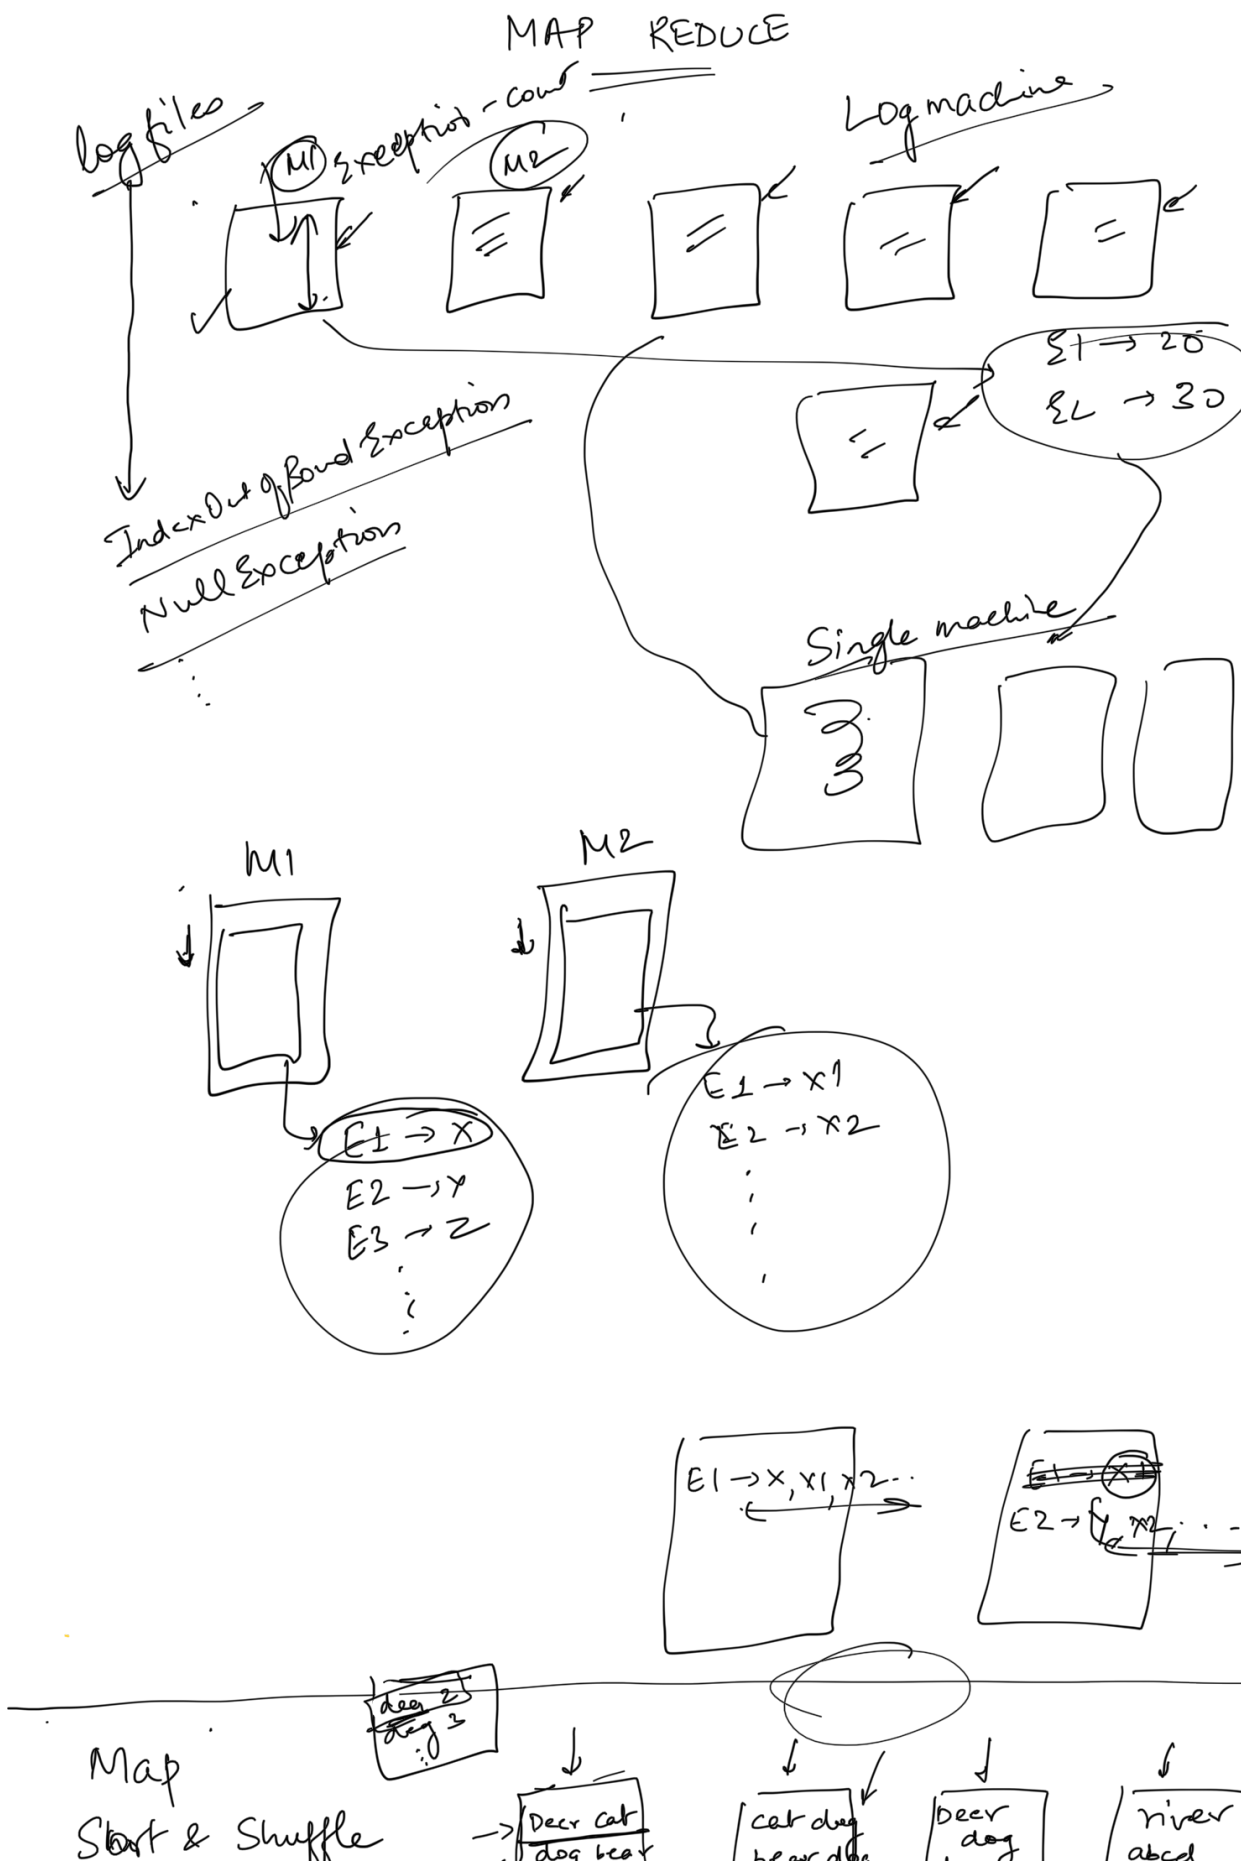 MAP REDUCE
Log files
Exception - count
Log machine
M1
M2
E1 → 20
E2 → 30
IndexOutofBoundException
NullException
Single machine
M1
M2
E1 → X
E2 → Y
E3 → Z
E1 → X1
E2 → X2
E1 → X, X1, X2...
E1 → X1
E2 → {Y, X2, . . -
deer 2
dog 3
Map
Sort & Shuffle
Deer cat
dog bear
cat dog
bear dog
Deer
dog
river
abcd